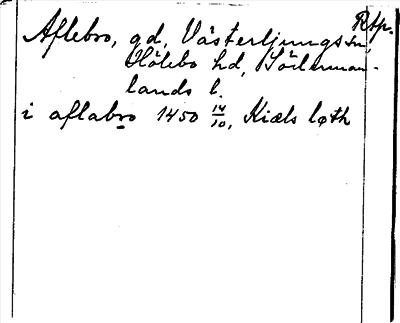 Rtp.
Aflebro, gd, Västerljungs sn,
Hölebo hd, Söderman-
lands l.
i aflabro 1450 14/10, Kiæls løth